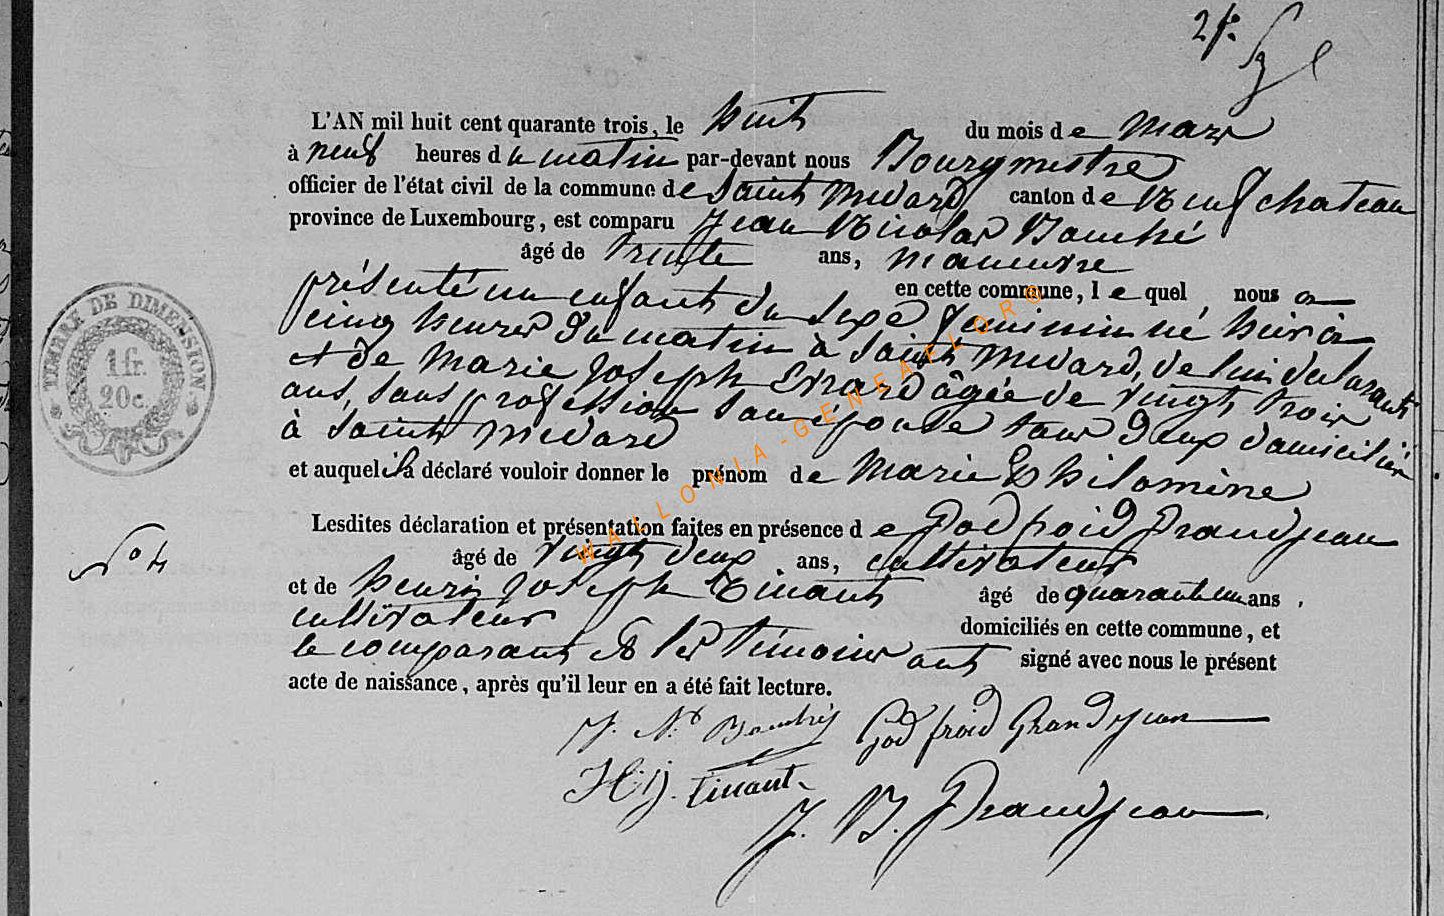 2 f.
L'AN mil huit cent quarante trois, le huit du mois de mars
à neuf heures du matin par-devant nous Bourgmestre
officier de l'état civil de la commune de Saint Medard canton de Neufchateau
province de Luxembourg, est comparu Jean Nicolas Bouché
âgé de trente ans, manœuvre
en cette commune, lequel nous a
présenté un enfant du sexe feminin né hier à
cinq heures du matin à Saint Medard, de lui declarant
et de Marie Joseph Evrard âgée de vingt trois
ans, sans profession son épouse tous deux domiciliés
à Saint Medard
et auquel il a déclaré vouloir donner le prénom de Marie Philomène
Lesdites déclaration et présentation faites en présence de Godfroid Grandjean
âgé de vingt deux ans, cultivateur
et de henri Joseph Tinant âgé de quarante un ans,
cultivateur domiciliés en cette commune, et
le comparant et les témoins ont signé avec nous le présent
acte de naissance, après qu'il leur en a été fait lecture.
J. N. Bouché Godfroid Grandjean
H. J. Tinant
J. B. Grandjean
N° 4
TIMBRE DE DIMENSION
1 fr.
20 c.
WALLONIA-GENEAELOR®